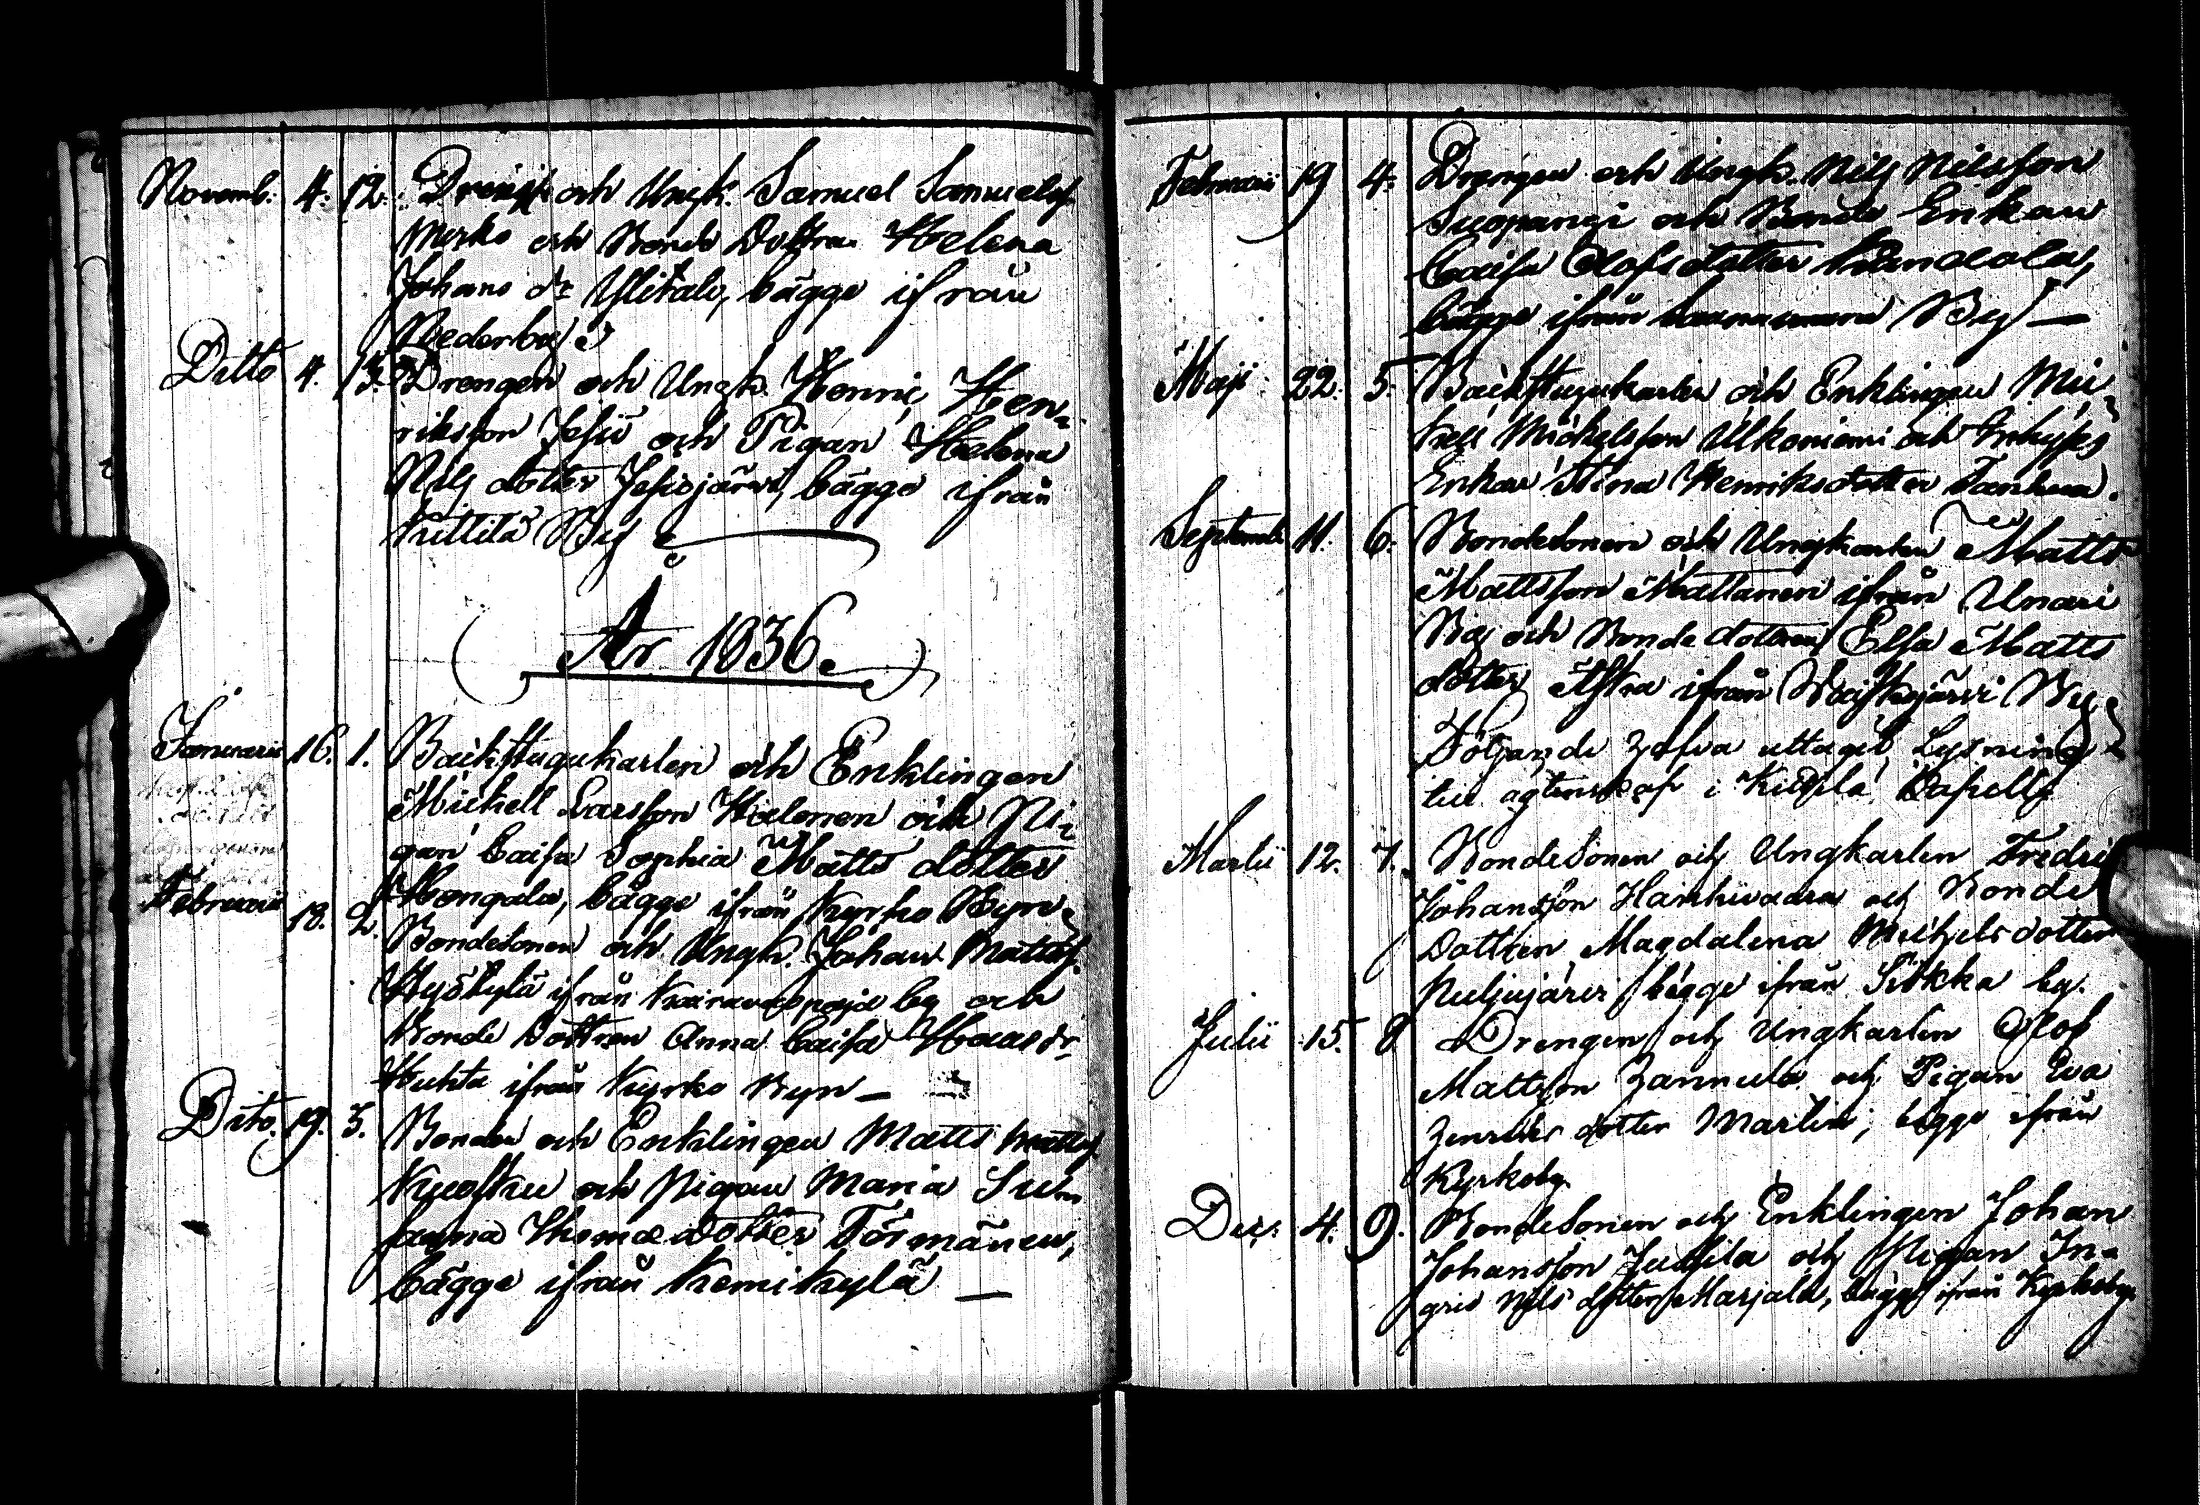 Novemb. 4. 12. Dreng och Ungk. Samuel Samuelsf.
Merko och Bonde Dottra Helena
Johans dr Ylitalo, bägge ifrån
Nederby
Ditto 4. 13. Drengen och Ungk. Henric Hen-
riksson Jesiö och Pigan Helena
Nils dotter Jesiojärvi, bägge ifrån
Kittilä By
År 1836.
Januarii 16. 1. Backstugukarlen och Enklingen
Mickell Larsson Halonen och Pi-
gan Caisa Sophia Matts dotter
Mongala, bägge ifrån Kyrko Byn
Februarii 18. 2. Bondesonen och Ungk. Johan Mattsf.
Hyöstylä ifrån by och
Bonde Dottren Anna Caisa dr
Kuhta ifrån Kyrko Byn —
Dito. 19. 3. Bonden och Enklingen Matts Mattsf.
och Pigan Maria Su-
sanna Thomæ Dotter Törmänen,
bägge ifrån Kemikylä —
Februarii 19 4. Drengen och Ungk. Nils Nilsson
Suopangi och Bonde Enkan
Caisa Olofs dotter
bägge ifrån By —
Maji 22. 5. Backstugukarlen och Enklingen Mic-
kell Mickelsson Ulkoniemi och Inhyses
Enkan Stina Henriksdotter Tanhua.
Septemb. 11. 6. Bondesonen och Ungkarlen Matts
Mattsson Mattanen ifrån Unari
By och Bonde dottren Elsa Matts
dotter ifrån By
Följande hafva uttagit Lysning
till ägtenskap i Kittilä Capell
Martii 12. 7. Bondesonen och Ungkarlen Fredric
Johansson Hanhivaara och Bonde
Dottren Magdalena Michelsdotter
Puljujärvi, bägge ifrån Sirkka by.
Julii 15. 8 Drengen och Ungkarlen Olof
Mattsson Hannula och Pigan Eva
Henriks dotter Martin; bägge ifrån
Kyrkoby.
Dec: 4. 9. Bondesonen och Enklingen Johan
Johansson och Pigan In-
grid Nils dotter Marjala, bägge ifrån Kyrkoby.